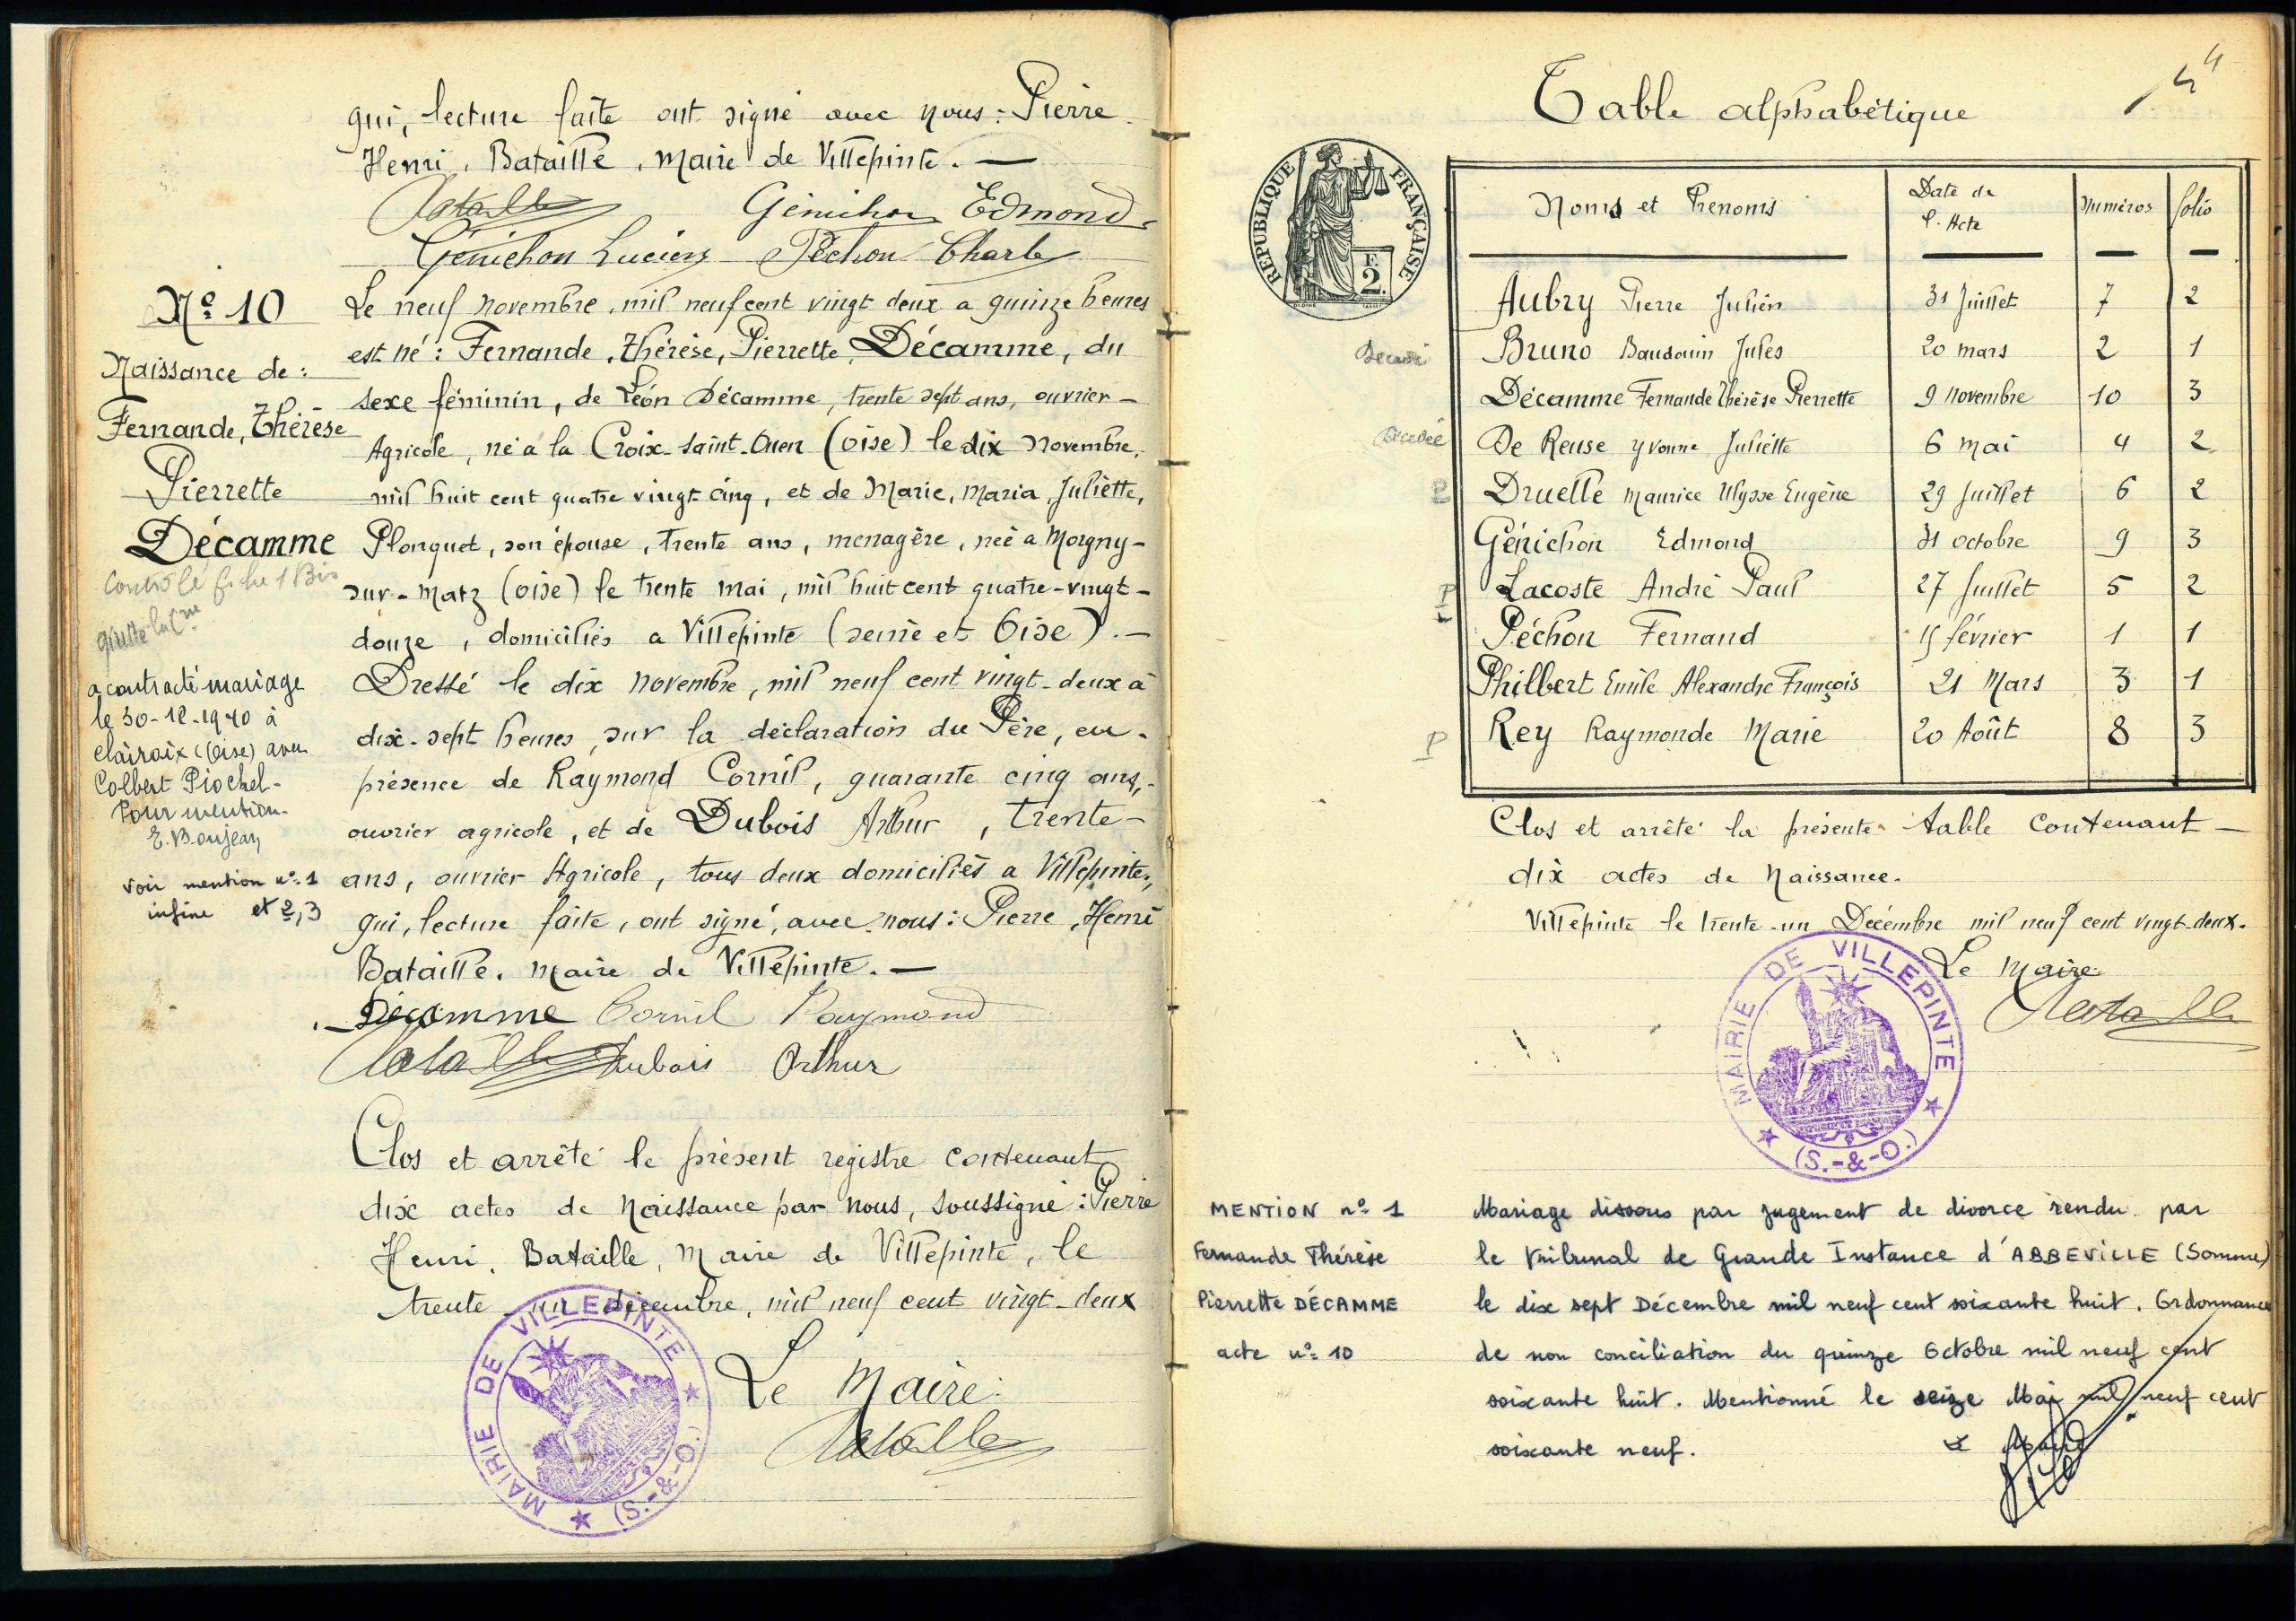 qui, lecture faite ont signé avec nous : Pierre
Henri, Bataille, Maire de Villepinte. —
Bataille Génichon Edmond
Génichon Lucien Péchon Charle
N° 10
Naissance de :
Fernande, Thérèse
Pierrette
Décamme
Contrôlé fiche 1 Bis
a contracté mariage
le 30-12-1940 à
Clairoix (Oise) avec
Colbert Piochel-
Pour mention-
E. Boujean
voir mention n° 1
infine et 2,3
Le neuf novembre, mil neuf cent vingt deux a quinze heures
est né : Fernande, Thérèse, Pierrette Décamme, du
sexe féminin, de Léon Décamme, trente sept ans, ouvrier -
Agricole, né a la Croix-Saint-Ouen (Oise) le dix Novembre,
mil huit cent quatre vingt cinq, et de Marie, Maria, Juliette,
Plonquet, son épouse, trente ans, menagère, née a Margny-
sur-Matz (Oise) le trente mai, mil huit cent quatre-vingt-
douze, domiciliés a Villepinte (Seine et Oise). -
Dressé le dix novembre, mil neuf cent vingt-deux à
dix-sept heures, sur la déclaration du Père, en
présence de Raymond Cornil, quarante cinq ans,-
ouvrier agricole, et de Dubois Arthur, trente-
ans, ouvrier Agricole, tous deux domiciliés a Villepinte,
qui, lecture faite, ont signé, avec nous : Pierre, Henri
Bataille. Maire de Villepinte. —
Décamme Cornil Raymond
Bataille Dubois Arthur
Clos et arrêté le présent registre contenant
dix actes de Naissance par nous, soussigné : Pierre
Henri, Bataille, Maire de Villepinte, le
trente-un décembre, mil neuf cent vingt-deux
Le Maire :
Bataille
MAIRIE DE VILLEPINTE
(S.-&-O.)
4
Table alphabétique
RÉPUBLIQUE FRANÇAISE
F.
2.
Noms et Prenoms Date de l'Acte Numéros folio
Aubry Pierre Julien 31 Juillet 7 2
Bruno Baudouin Jules 20 mars 2 1
Décamme Fernande Thérèse Pierrette 9 novembre 10 3
Décédée De Reuse Yvonne Juliette 6 Mai 4 2
Druelle Maurice Ulysse Eugène 29 Juillet 6 2
Génichon Edmond 31 octobre 9 3
P Lacoste André Paul 27 Juillet 5 2
Péchon Fernand février 1 1
Philbert Emile Alexandre François 21 Mars 3 1
P Rey Raymonde Marie 20 Août 8 3
Clos et arrêté la présente table contenant -
dix actes de Naissance.
Villepinte le trente-un Décembre mil neuf cent vingt-deux.
Le Maire
Bataille
MAIRIE DE VILLEPINTE
(S.-&-O.)
MENTION n° 1
Fernande Thérèse
Pierrette DÉCAMME
acte n° 10
Mariage dissous par jugement de divorce rendu par
le Tribunal de Grande Instance d'ABBEVILLE (Somme)
le dix sept Décembre mil neuf cent soixante huit. Ordonnance
de non conciliation du quinze Octobre mil neuf cent
soixante huit. Mentionné le seize Mai mil neuf cent
soixante neuf.